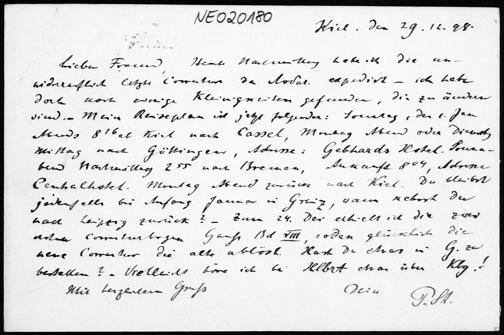 NE020180
Kiel, den 29.12.98.
Lieber Freund, Heute Nachmittag habe ich die un-
widerruflich letzte Correctur der Abdr. expedirt – ich habe
doch noch einige Kleinigkeiten gefunden, die zu ändern
sind. – Mein Reiseplan ist jetzt folgender: Sonntag, den 1. Jan.
Abends 8 ab Kiel nach Cassel, Montag Abend oder Dienstag
Mittag nach Göttingen, Adresse: Gebhards Hotel. Sonna-
bend Nachmittag 2 55 nach Bremen, Ankunft 8 04, Adresse
Centralhotel. Montag Abend zurück nach Kiel. Du bleibst
jedenfalls bis Anfang Januar in Greiz, wann kehrst Du
nach Leipzig zurück? – Zum 24. Dez. erhielt ich die zwei
ersten Correcturbogen Gauss Bd VIII, sodass glücklich die
neue Correctur die alte ablöst. Hast Du etwas in G. zu
bestellen? – Vielleicht höre ich bei Hlbrt etwas über Kbg.!
Mit herzlichem Gruss
Dein
P. St.